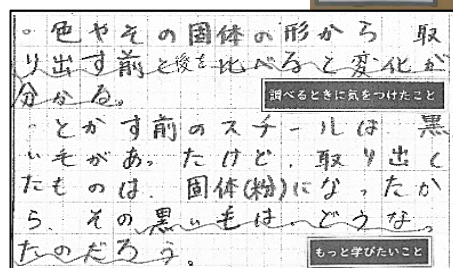 ・色やその固体の形から 取
り出す前と後を比べると変化が
分かる。
調べるときに気をつけたこと
・とかす前のスチールは 黒
い毛があったけど、取り出し
たものは、固体(粉)になったか
ら、その黒い毛は、どうなっ
たのだろう。
もっと学びたいこと